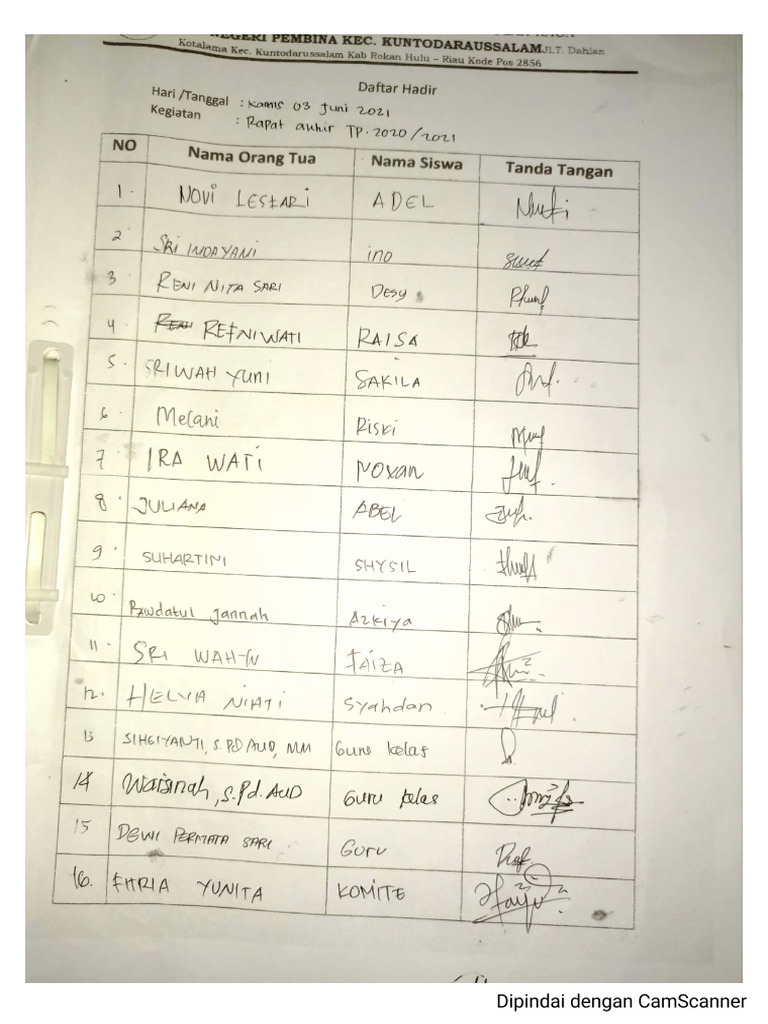 NEGERI PEMBINA KEC. KUNTODARAUSSALAM JLT. Dahlan
Kotalama Kec. Kuntodarussalam Kab Rokan Hulu – Riau Kode Pos 2856
Daftar Hadir
Hari /Tanggal : Kamis 03 Juni 2021
Kegiatan : Rapat akhir TP. 2020/2021
NO Nama Orang Tua Nama Siswa Tanda Tangan
1. NOVI LESTARI ADEL
2 SRI INDAYANI ino
3 RENI NITA SARI Desy
4 REFNIWATI RAISA
5. SRIWAH YUNI SAKILA
6 Melani Riski
7 IRA WATI NOXAN
8 JULIANA ABEL
9 SUHARTINI SHYSIL
10 Rawdatul Jannah Azkiya
11. SRI WAHYU FAIZA
12. HELVIA NIATI Syahdan
13 S.PD AUD, MM Guru kelas
14 Waisnah, S.Pd. AUD Guru kelas
15 DEWI PERMATA SARI GURU
16. FHRIA YUNITA KOMITE
Dipindai dengan CamScanner